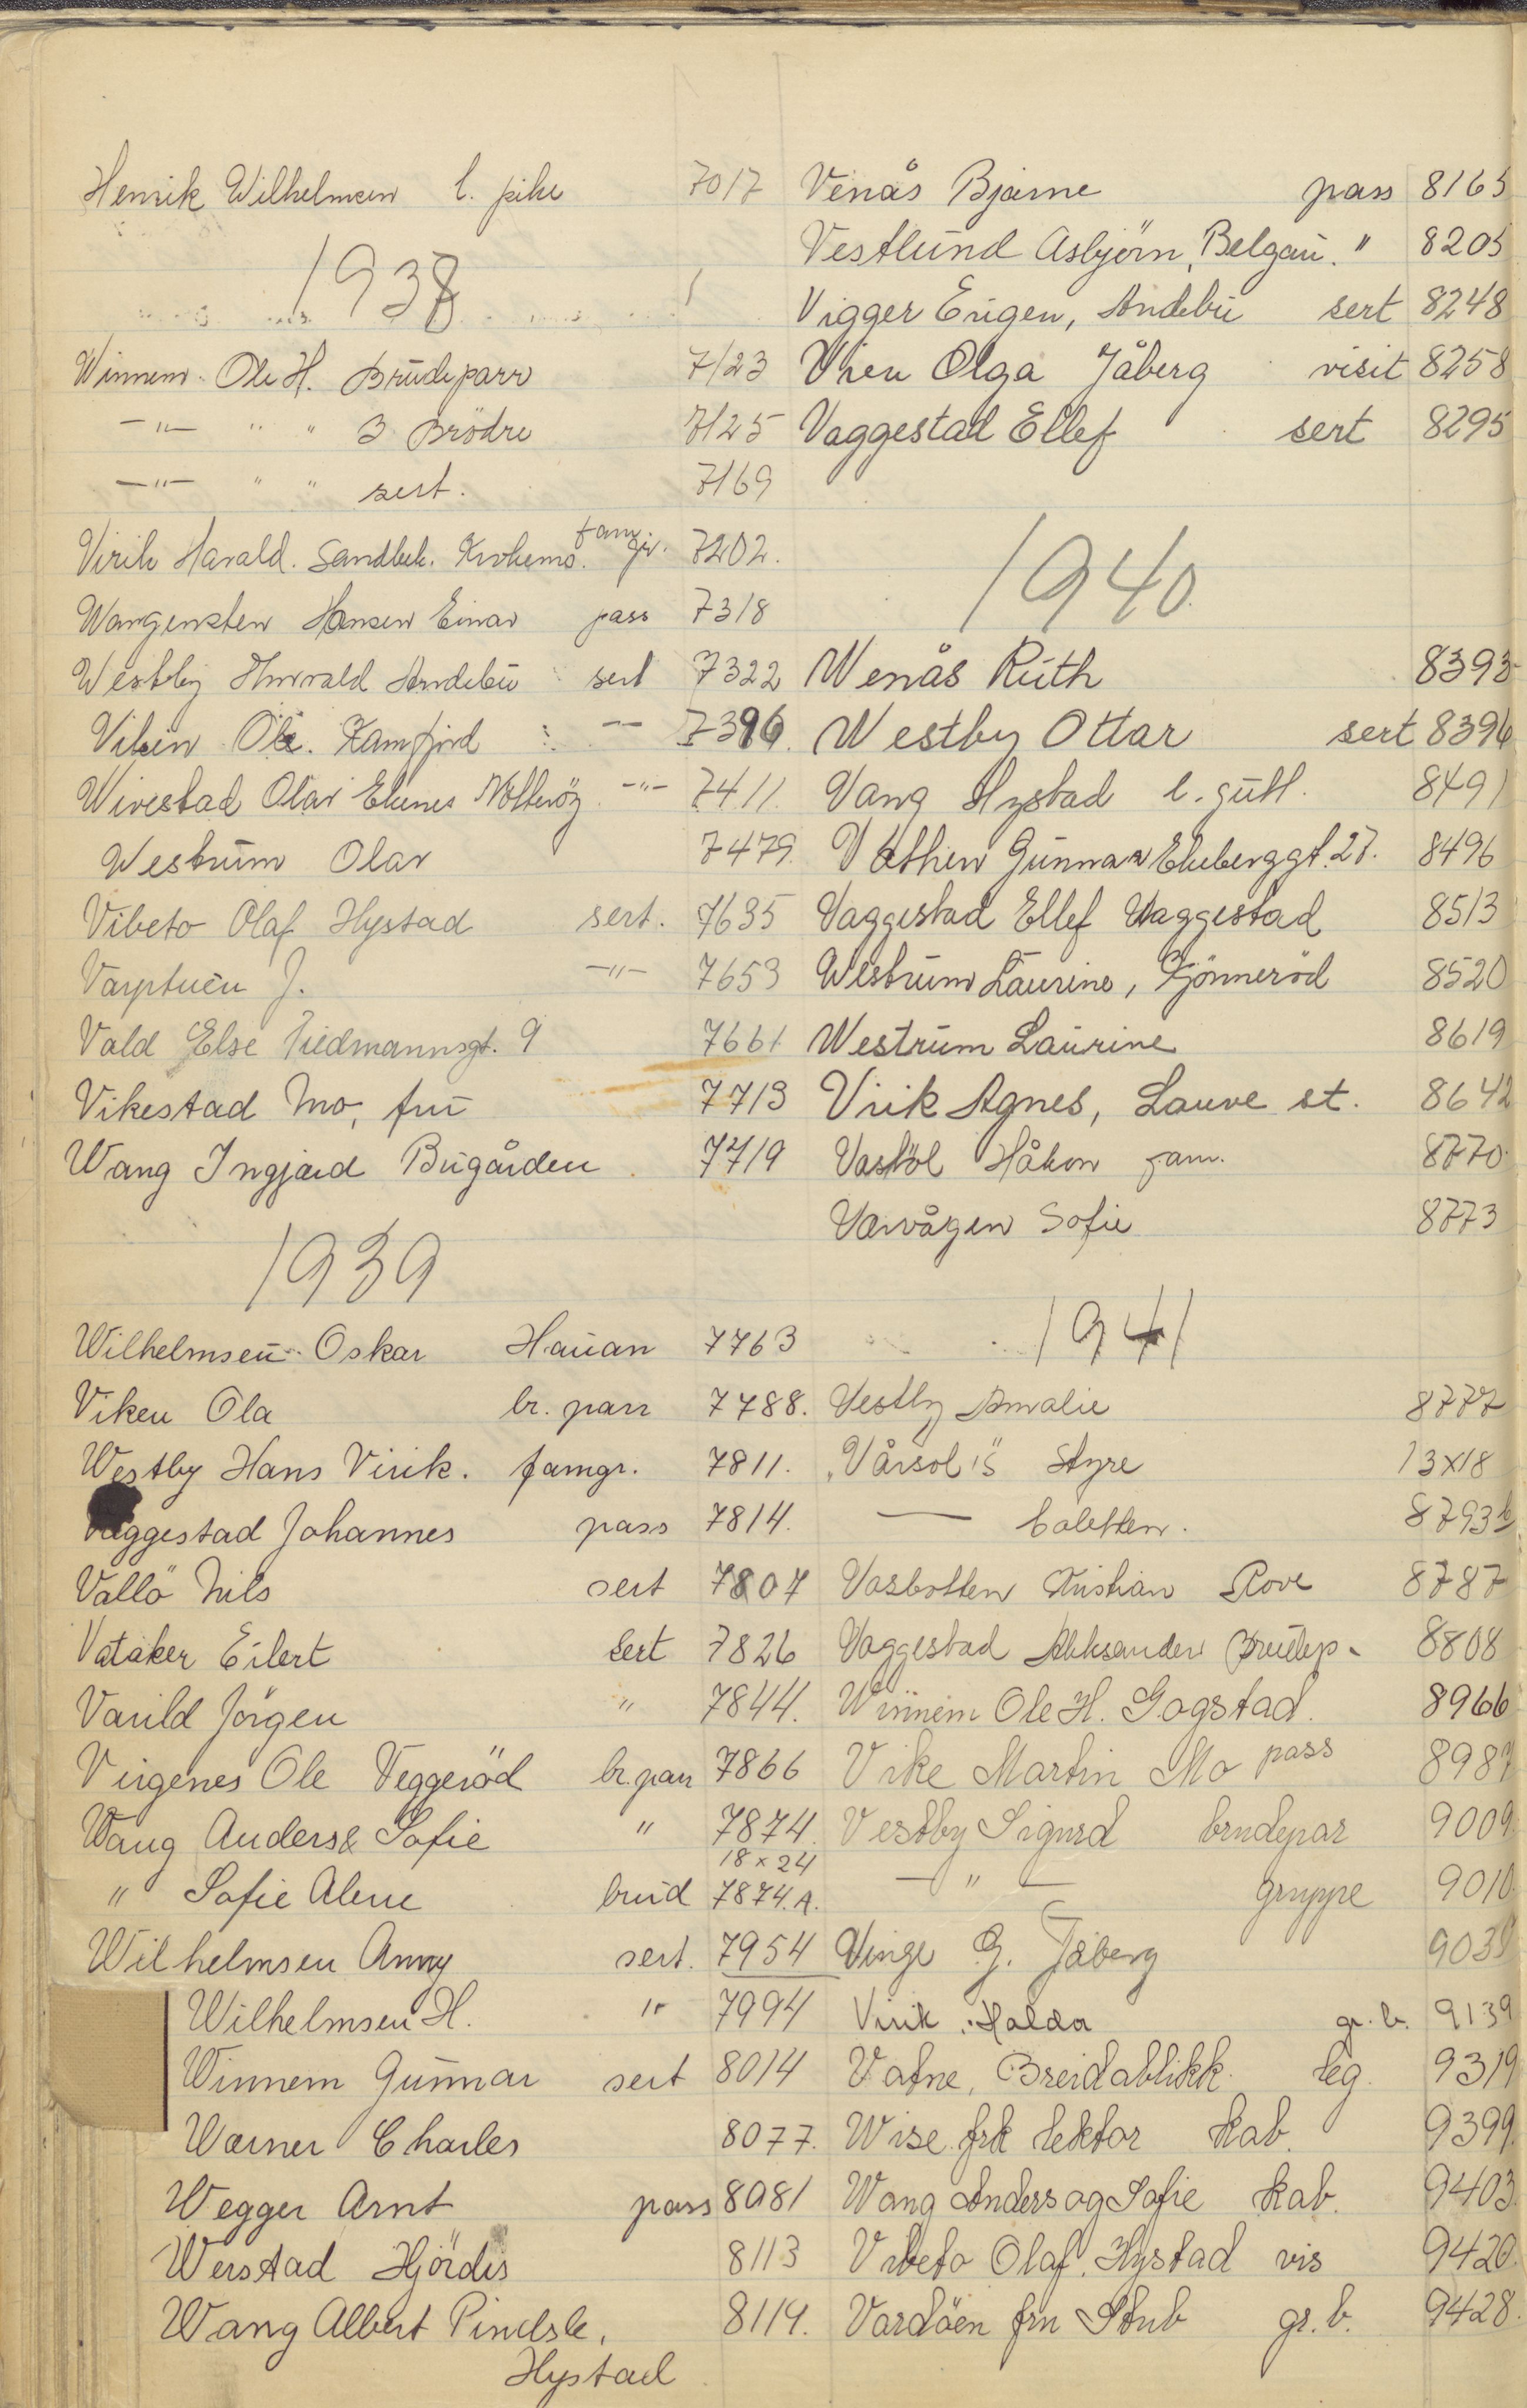 Henrik Wilhelmsen l. pike 7017
1938
Winnem Ole H. Brudeparr 7123
-"- " " 3 Brödre 7125
-"- " " sert. 7169
Virik Harald. Sandbek. Krokemo. fam gr. 7202.
Wangensten Hansen Einar pass 7318
Westby Thorvald Andebu sert 7322
Viken Ole. Kamfjord — 7396.
Wivestad Olav Ekenes Nötteröy -"- 7411.
Westrum Olav 7479.
Vibeto Olaf Hystad sert. 7635
Varptuen J. -"- 7653
Vald Else Tiedmannsgt. 9 7661
Vikestad Mo, fru 7713
Wang Ingjard Bugården 7719
1939
Wilhelmsen Oskar Hauan 7763
Viken Ola br. parr 7788.
Westby Hans Virik. famgr. 7811.
Vaggestad Johannes pass 7814.
Vallö Nils sert 7807
Vataker Eilert sert 7826
Varild Jörgen " 7844.
Virgenes Ole Veggeröd br. parr 7866
Wang Anders & Sofie " 7874.
18 x 24
" Sofie Alene brud 7874.A.
Wilhelmsen Anny sert. 7954
Wilhelmsen H. " 7994
Winnem Gunnar sert 8014
Warner Charles 8077.
Wegger Arnt pass 8081
Werstad Hjördis 8113
Wang Albert Pindsle, 8119.
Hystad
Venås Bjarne pass 8165
Vestlund Asbjörn, Belgau. " 8205
Vigger Eugen, Andebu sert 8248
Vien Olga Jåberg visit 8258
Vaggestad Ellef sert 8295
1940.
Wenås Ruth 8393
Westby Ottar sert 8396
Vang Hystad l. gutt. 8491
Vathen Gunnar Ekeberggt. 27. 8496
Vaggestad Ellef Vaggestad 8513
Westrum Laurine, Gjönneröd 8520
Westrum Laurine 8619
Virik Agnes, Lauve st. 8642
Vastöl Håkon fam. 8770.
Varvågen Sofie 8773
1941
Vestby Amalie 8777
"Vårsol"s Styre 13x18
— toletten. 8793 b
Vasbotten Kristian Rove 8787
Vaggestad Aleksander Brudep. 8808
Winnem Ole H. Gogstad. 8966
Vike Martin Mo pass 8987
Vestby Sigurd brudepar 9009.
— " — gruppe 9010.
Vinge G. Jåberg 9038
Virik Halda gr. b. 9139
Vatne, Breidablikk leg. 9319
Wise frk lektor kab. 9399.
Wang Anders og Sofie kab. 9403.
Vibeto Olaf. Hystad vis 9420.
Vardöen fru Stub gr. b. 9428.